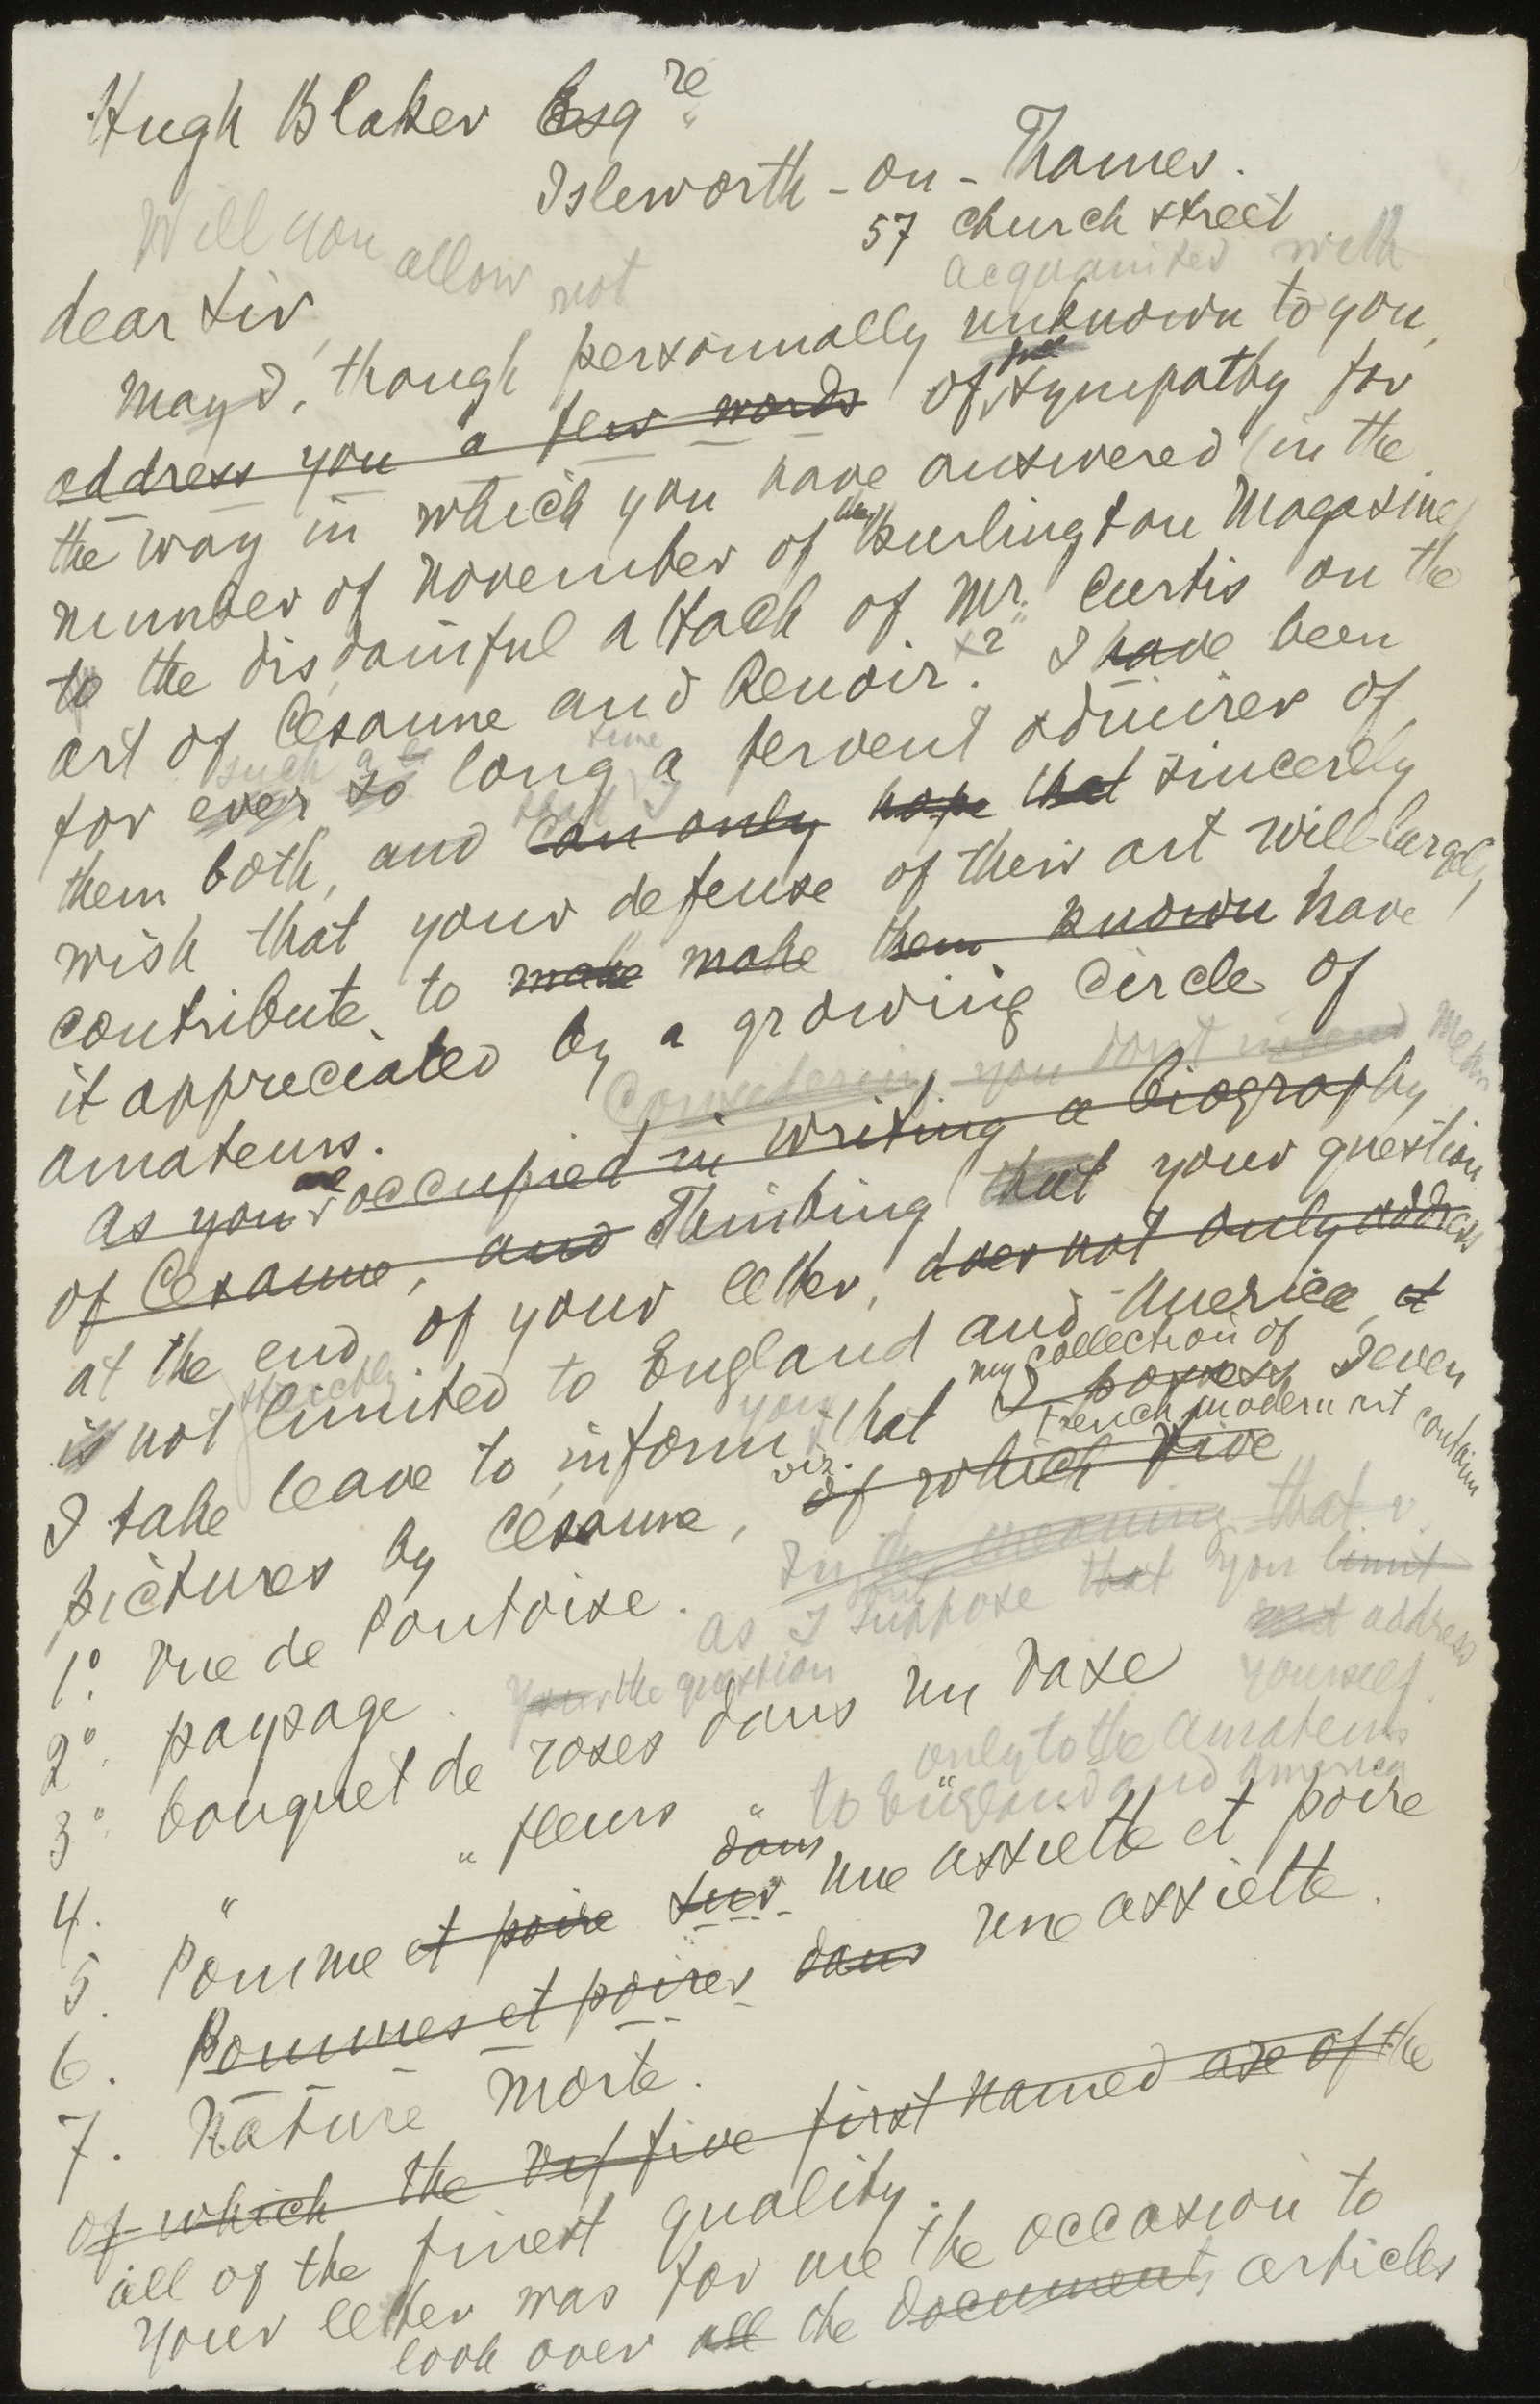 Hugh Blaker Esqre
Isleworth - on - Thames.
57 church street
Will you allow not acquainted with
dear Sir,
May I, though personnally unknown to you,
address you a few words of true sympathy for
the way in which you have answered (in the
number of November of the Burlington Magazine)
to the disdainful attack of Mr. Curtis on the
art of Cesanne and Renoir. x? I have been
such a time
for ever so long a fervent admirer of
that I
them both, and can only hope that sincerely
wish that your defense of their art will largely
contribute to make make them known have
it appreciated by a growing circle of
amateurs.
Considering you dont intend mean
as you are occupied in writing a biography
of Cesanne, and Thinking that your question
at the end of your letter, does not only address
strictly
is not limited to England and America, et
you my collection of
I take leave to inform that I possess seven
french modern art contains
pictures by Césanne, viz. of which five
In the meaning that
1º. Vue de Pontoise.
as I dont suppose that you limit
address
2º. paysage. your the question yourself.
3º. bouquet de roses dans un vase
only to the amateurs
to England and America
4. " " fleurs " "
dans
5. Pomme et poire sur une assiette et poire
6. Pommes et poires dans une assiette.
7. Nature morte.
of which the five first named are of the
all of the finest quality.
Your letter was for me the occasion to
look over all the documents articles